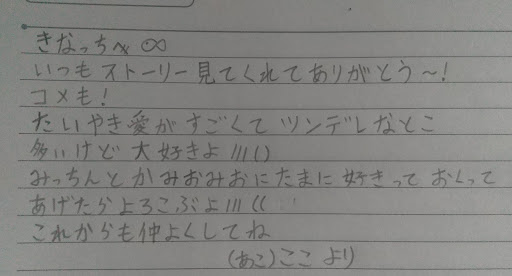 きなっちへ ∞
いつもストーリー見てくれてありがとう～!
コメも!
たいやき愛がすごくてツンデレなとこ
多いけど大好きよ///()
みっちんとかみおみおにたまに好きっておくって
あげたらよろこぶよ///((
これからも仲よくしてね
(あこ)ここより